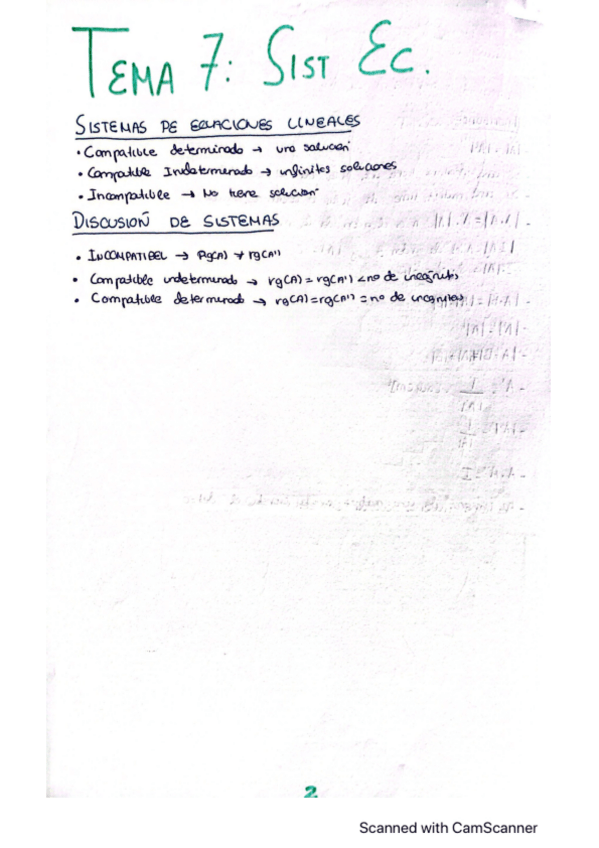 TEMA 7: SIST EC.
SISTEMAS DE ECUACIONES LINEALES
• Compatible determinado → una solución
• Compatible Indeterminado → infinitas soluciones
• Incompatible → No tiene solución
DISCUSIÓN DE SISTEMAS
• INCOMPATIBEL → Rg(A) ≠ rg(A')
• Compatible indeterminado → rg(A) = rg(A') < no de incógnitas
• Compatible determinado → rg(A) = rg(A') = no de incognitas
2
Scanned with CamScanner